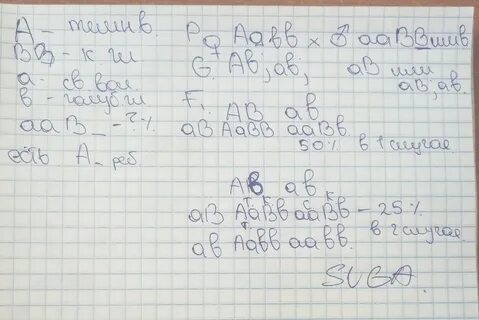 А - темн в.
ВВ - к. гл
а - св. вол.
в - голуб гл
ааВ_ - ? %
есть А_ реб
Р ♀ Аавв × ♂ ааВВ или в
G. Ав, ав; аВ или
аВ; ав.
F₁ АВ ав
аВ АаВВ ааВв
50% в 1 случае
Ав ав
Т К С К
аВ АаВв ааВв - 25%
Т
ав Аавв аавв. в 2 случае
SUGA.